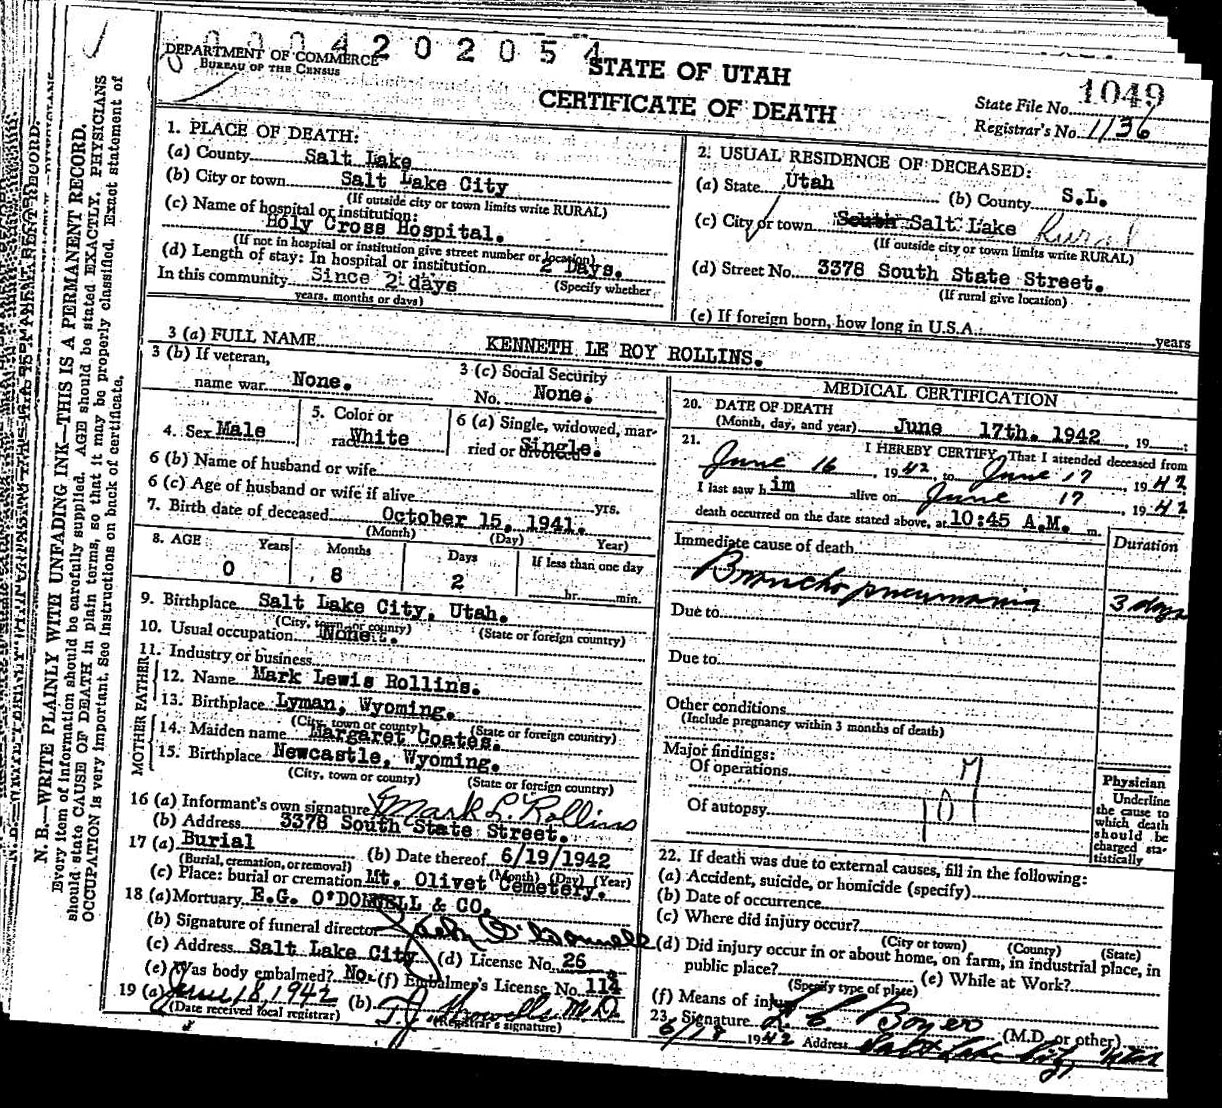 0004202054
DEPARTMENT OF COMMERCE
BUREAU OF THE CENSUS
STATE OF UTAH
CERTIFICATE OF DEATH
State File No. 1049
Registrar's No. 1136
N. B.—WRITE PLAINLY WITH UNFADING INK—THIS IS A PERMANENT RECORD.
Every item of information should be carefully supplied. AGE should be stated EXACTLY. PHYSICIANS
should state CAUSE OF DEATH in plain terms, so that it may be properly classified. Exact statement of
OCCUPATION is very important. See instructions on back of certificate.
1. PLACE OF DEATH:
(a) County Salt Lake
(b) City or town Salt Lake City
(If outside city or town limits write RURAL)
(c) Name of hospital or institution:
Holy Cross Hospital.
(If not in hospital or institution give street number or location)
(d) Length of stay: In hospital or institution 2 Days.
(Specify whether
In this community Since 2 days
years, months or days)
2. USUAL RESIDENCE OF DECEASED:
(a) State Utah (b) County S.L.
(c) City or town South Salt Lake Rural
(If outside city or town limits write RURAL)
(d) Street No. 3378 South State Street.
(If rural give location)
(e) If foreign born, how long in U.S.A. years
3 (a) FULL NAME KENNETH LE ROY ROLLINS.
3 (b) If veteran,
name war None.
3 (c) Social Security
No. None.
4. Sex Male
5. Color or
race White
6 (a) Single, widowed, mar-
ried or divorced Single.
6 (b) Name of husband or wife
6 (c) Age of husband or wife if alive yrs.
7. Birth date of deceased October 15, 1941.
(Month) (Day) Year)
8. AGE Years Months Days If less than one day
0 8 2 hr. min.
9. Birthplace Salt Lake City, Utah.
(City, town or county) (State or foreign country)
10. Usual occupation None.
11. Industry or business
FATHER
12. Name Mark Lewis Rollins.
13. Birthplace Lyman, Wyoming.
(City, town or county) (State or foreign country)
MOTHER
14. Maiden name Margaret Coates.
15. Birthplace Newcastle, Wyoming.
(City, town or county) (State or foreign country)
16 (a) Informant's own signature Mark L. Rollins
(b) Address 3378 South State Street.
17 (a) Burial (b) Date thereof 6/19/1942
(Burial, cremation, or removal) (Month) (Day) (Year)
(c) Place: burial or cremation Mt. Olivet Cemetery.
18 (a) Mortuary E.G. O'DONNELL & CO.
(b) Signature of funeral director O'Donnell
(c) Address Salt Lake City (d) License No. 26
(e) Was body embalmed? No. (f) Embalmer's License No. 114
19 (a) June 18, 1942 (b) T.J. Howells M.D.
(Date received local registrar) (Registrar's signature)
MEDICAL CERTIFICATION
20. DATE OF DEATH
(Month, day, and year) June 17th. 1942, 19
21. I HEREBY CERTIFY, That I attended deceased from
June 16, 1942 to June 17 1942
I last saw him alive on June 17 1942
death occurred on the date stated above, at 10:45 A.M. m.
Immediate cause of death Duration
Broncho pneumonia 3 days
Due to
Due to
Other conditions
(Include pregnancy within 3 months of death)
Major findings:
Of operations
Of autopsy
107
Physician
Underline
the cause to
which death
should be
charged sta-
tistically
22. If death was due to external causes, fill in the following:
(a) Accident, suicide, or homicide (specify)
(b) Date of occurrence
(c) Where did injury occur?
(City or town) (County) (State)
(d) Did injury occur in or about home, on farm, in industrial place, in
public place? (e) While at Work?
(Specify type of place)
(f) Means of injury
23. Signature L. C. Boyer (M.D. or other)
6/18 1942 Address Salt Lake City, Utah